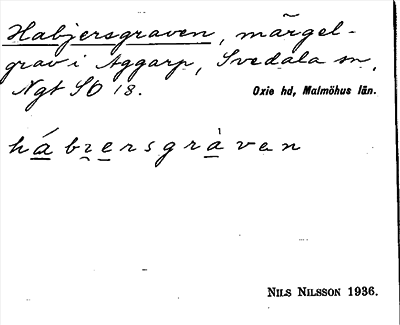 Habjersgraven, märgel-
grav i Aggarp, Svedala sn,
Ngt SO 18. Oxie hd, Malmöhus län.
hábɪersgràven
NILS NILSSON 1936.